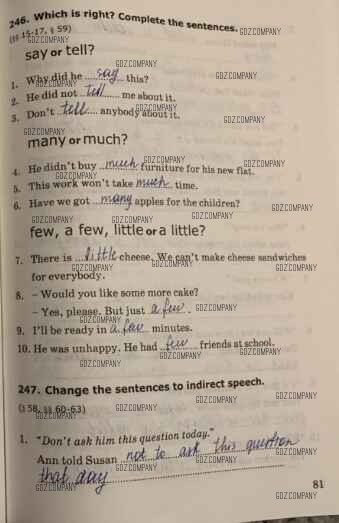 246. Which is right? Complete the sentences.
(§§ 15-17, § 59)
say or tell?
1. Why did he say this?
2. He did not tell me about it.
3. Don't tell anybody about it.
many or much?
4. He didn't buy much furniture for his new flat.
5. This work won't take much time.
6. Have we got many apples for the children?
few, a few, little or a little?
7. There is little cheese. We can't make cheese sandwiches
for everybody.
8. – Would you like some more cake?
– Yes, please. But just a few.
9. I'll be ready in a few minutes.
10. He was unhappy. He had few friends at school.
247. Change the sentences to indirect speech.
(§ 58, §§ 60-63)
1. "Don't ask him this question today."
Ann told Susan not to ask this question
that day
81
GDZ.COMPANY